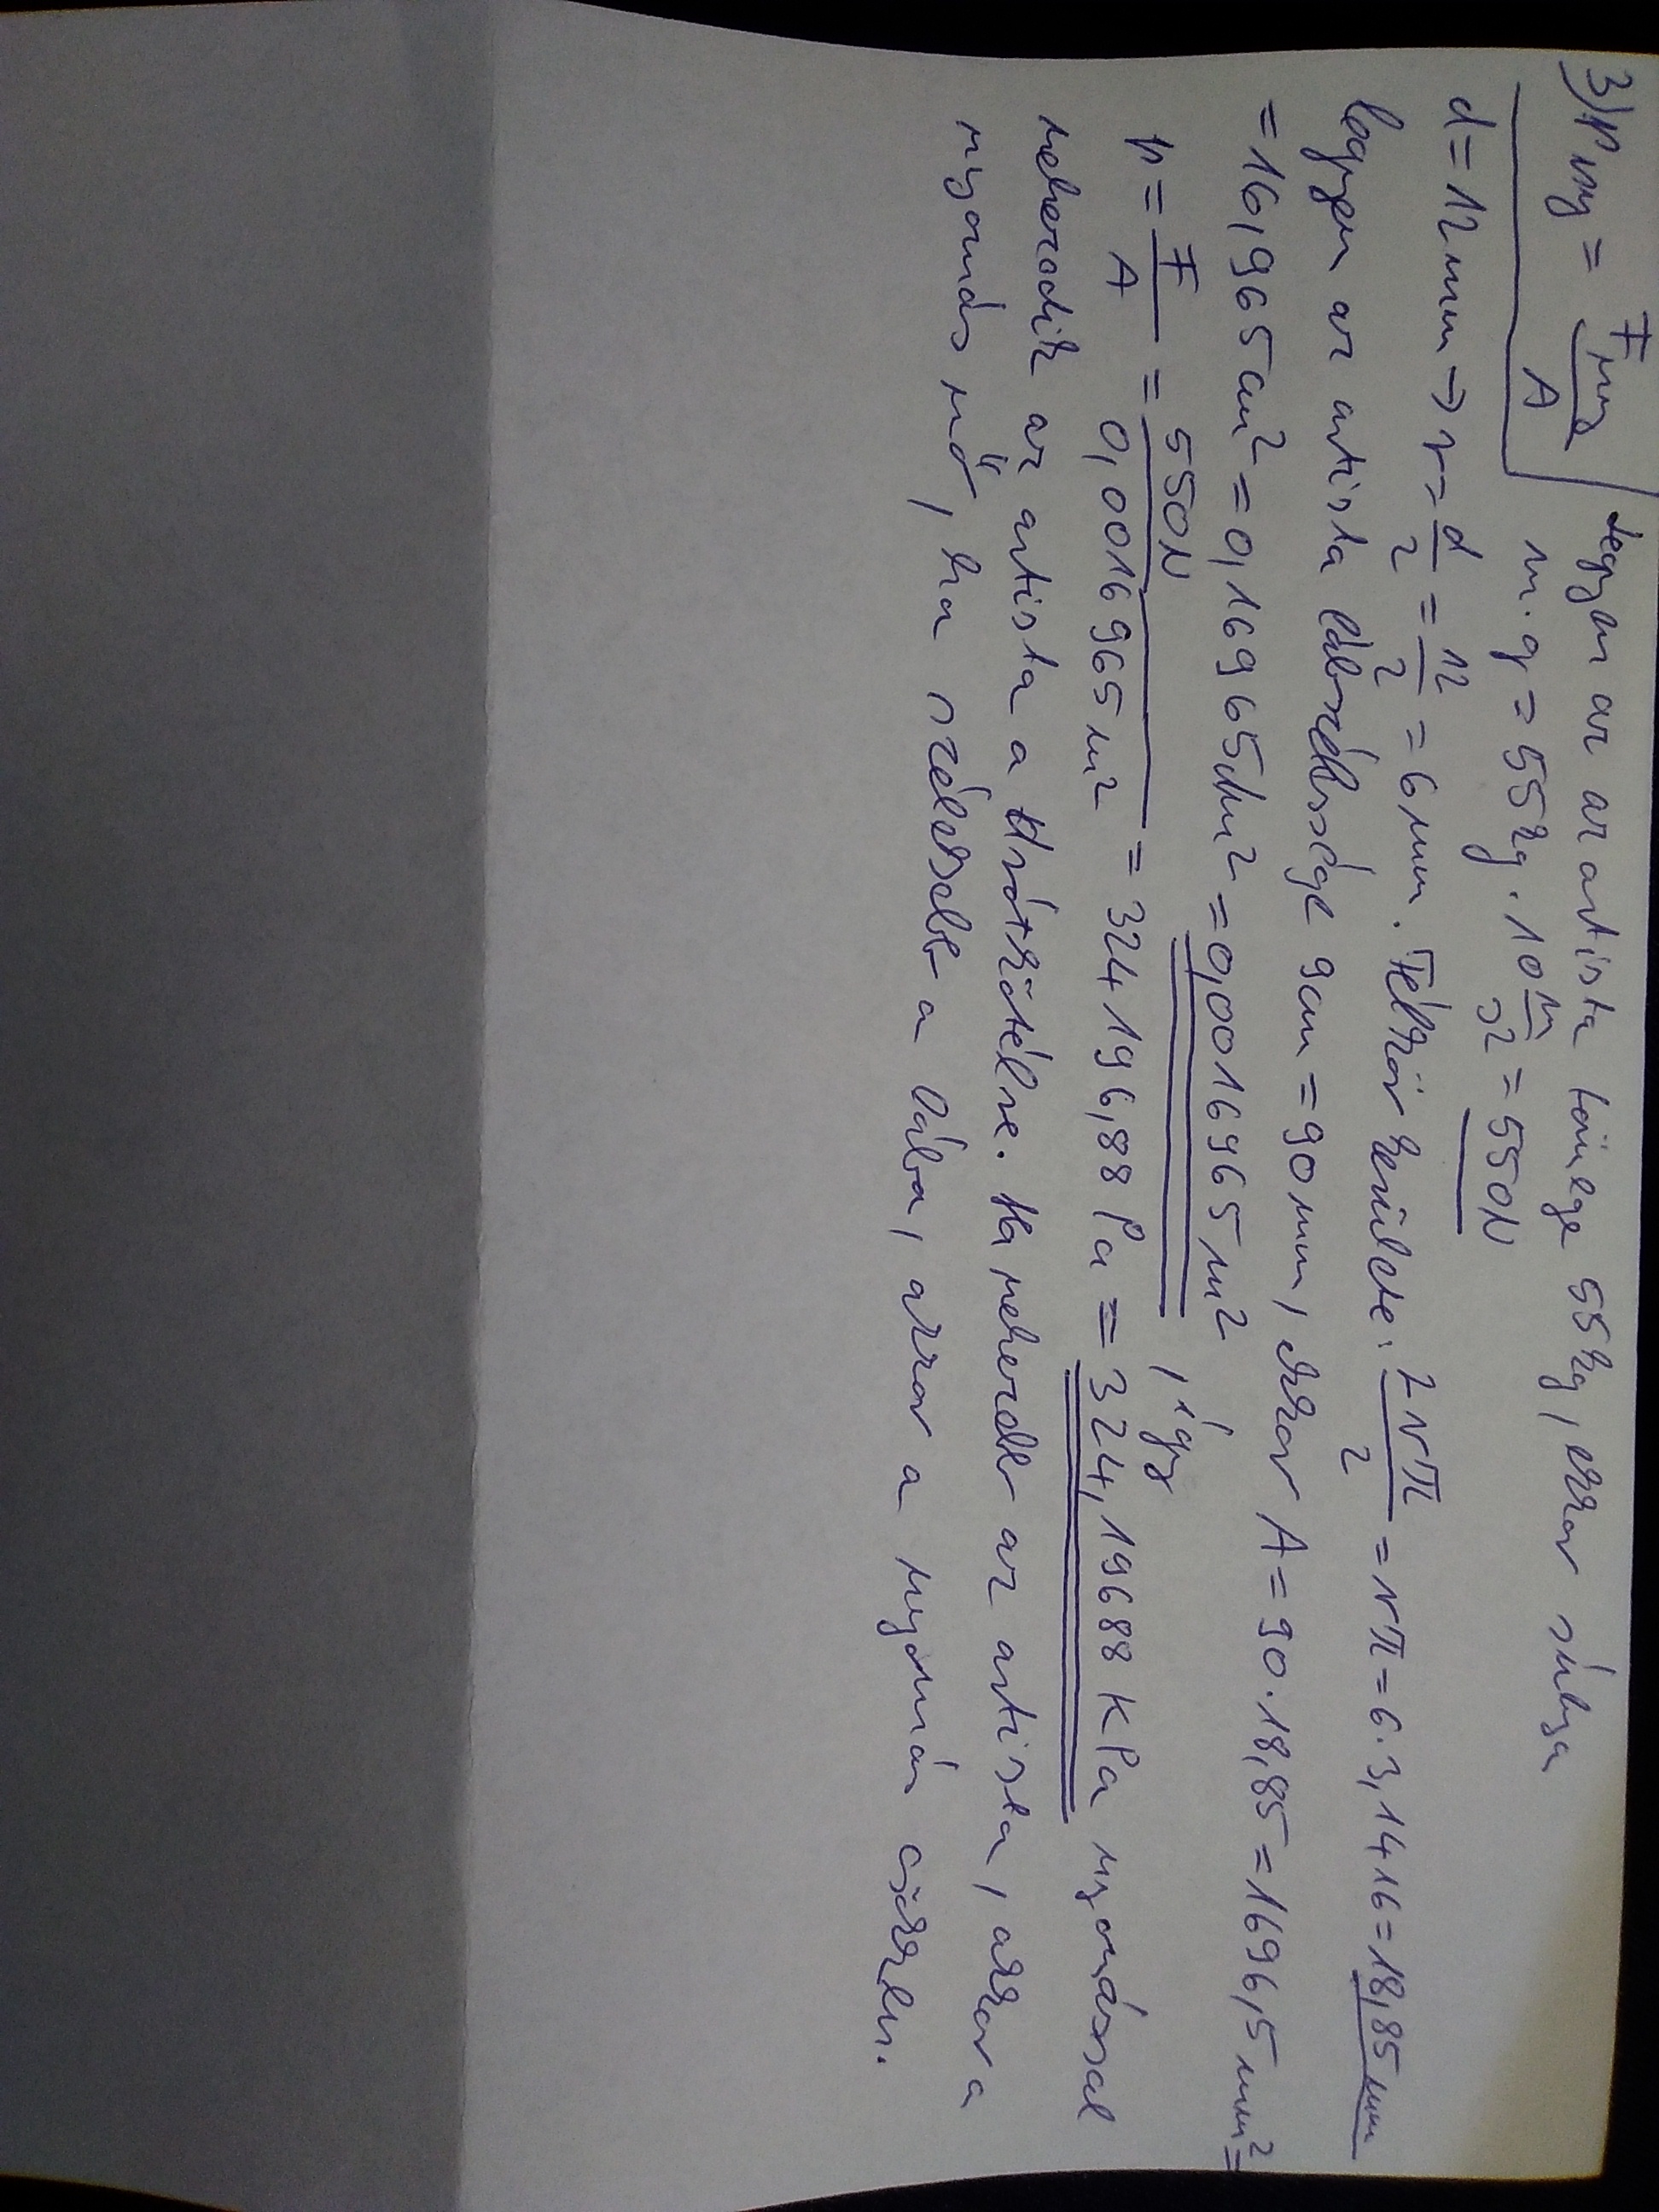 3) Pny = Fny / A legyen az az artista tömege 55kg, ekkor súlya
m·g = 55kg · 10 m/s² = 550N
d = 12mm → r = d/2 = 12/2 = 6mm. Félkör kerülete: 2rπ/2 = rπ = 6·3,1416 = 18,85mm
legyen az artista lábszélessége 9cm = 90mm, ekkor A = 90·18,85 = 1696,5mm² =
= 16,965cm² = 0,16965dm² = 0,0016965m², így
p = F/A = 550N / 0,0016965m² = 324196,88 Pa = 324,19688 KPa nyomással
nehezedik az artista a drótkötélre. Ha nehezebb az artista, akkor a
nyomás nő, ha szélesebb a lába, akkor a nyomás csökken.